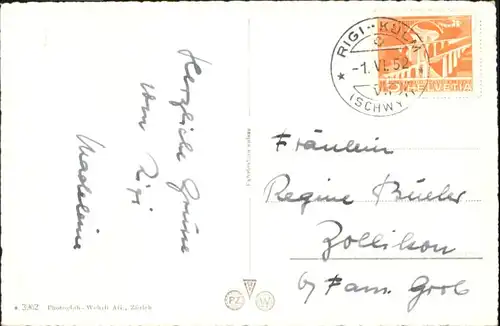 Herzliche Grüsse
vom Rigi
Madeleine
RIGI-KULM
-1. VI. 52
(SCHWYZ)
5 HELVETIA
Fräulein
Regine Büeler
Zollikon
by Fam. Grob
PZ W
3262 Photoglob-Wehrli AG., Zürich